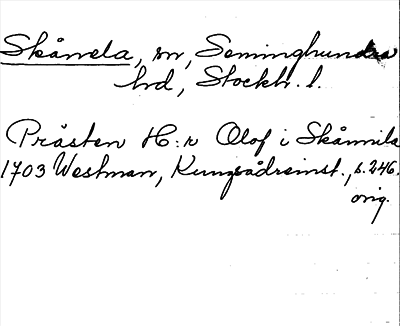 Skånela, sn, Seminghundra
hd, Stockh. l.
Prästen H:r Olof i Skånnila
1703 Westman, Kungsådreinst., s. 246.
orig.